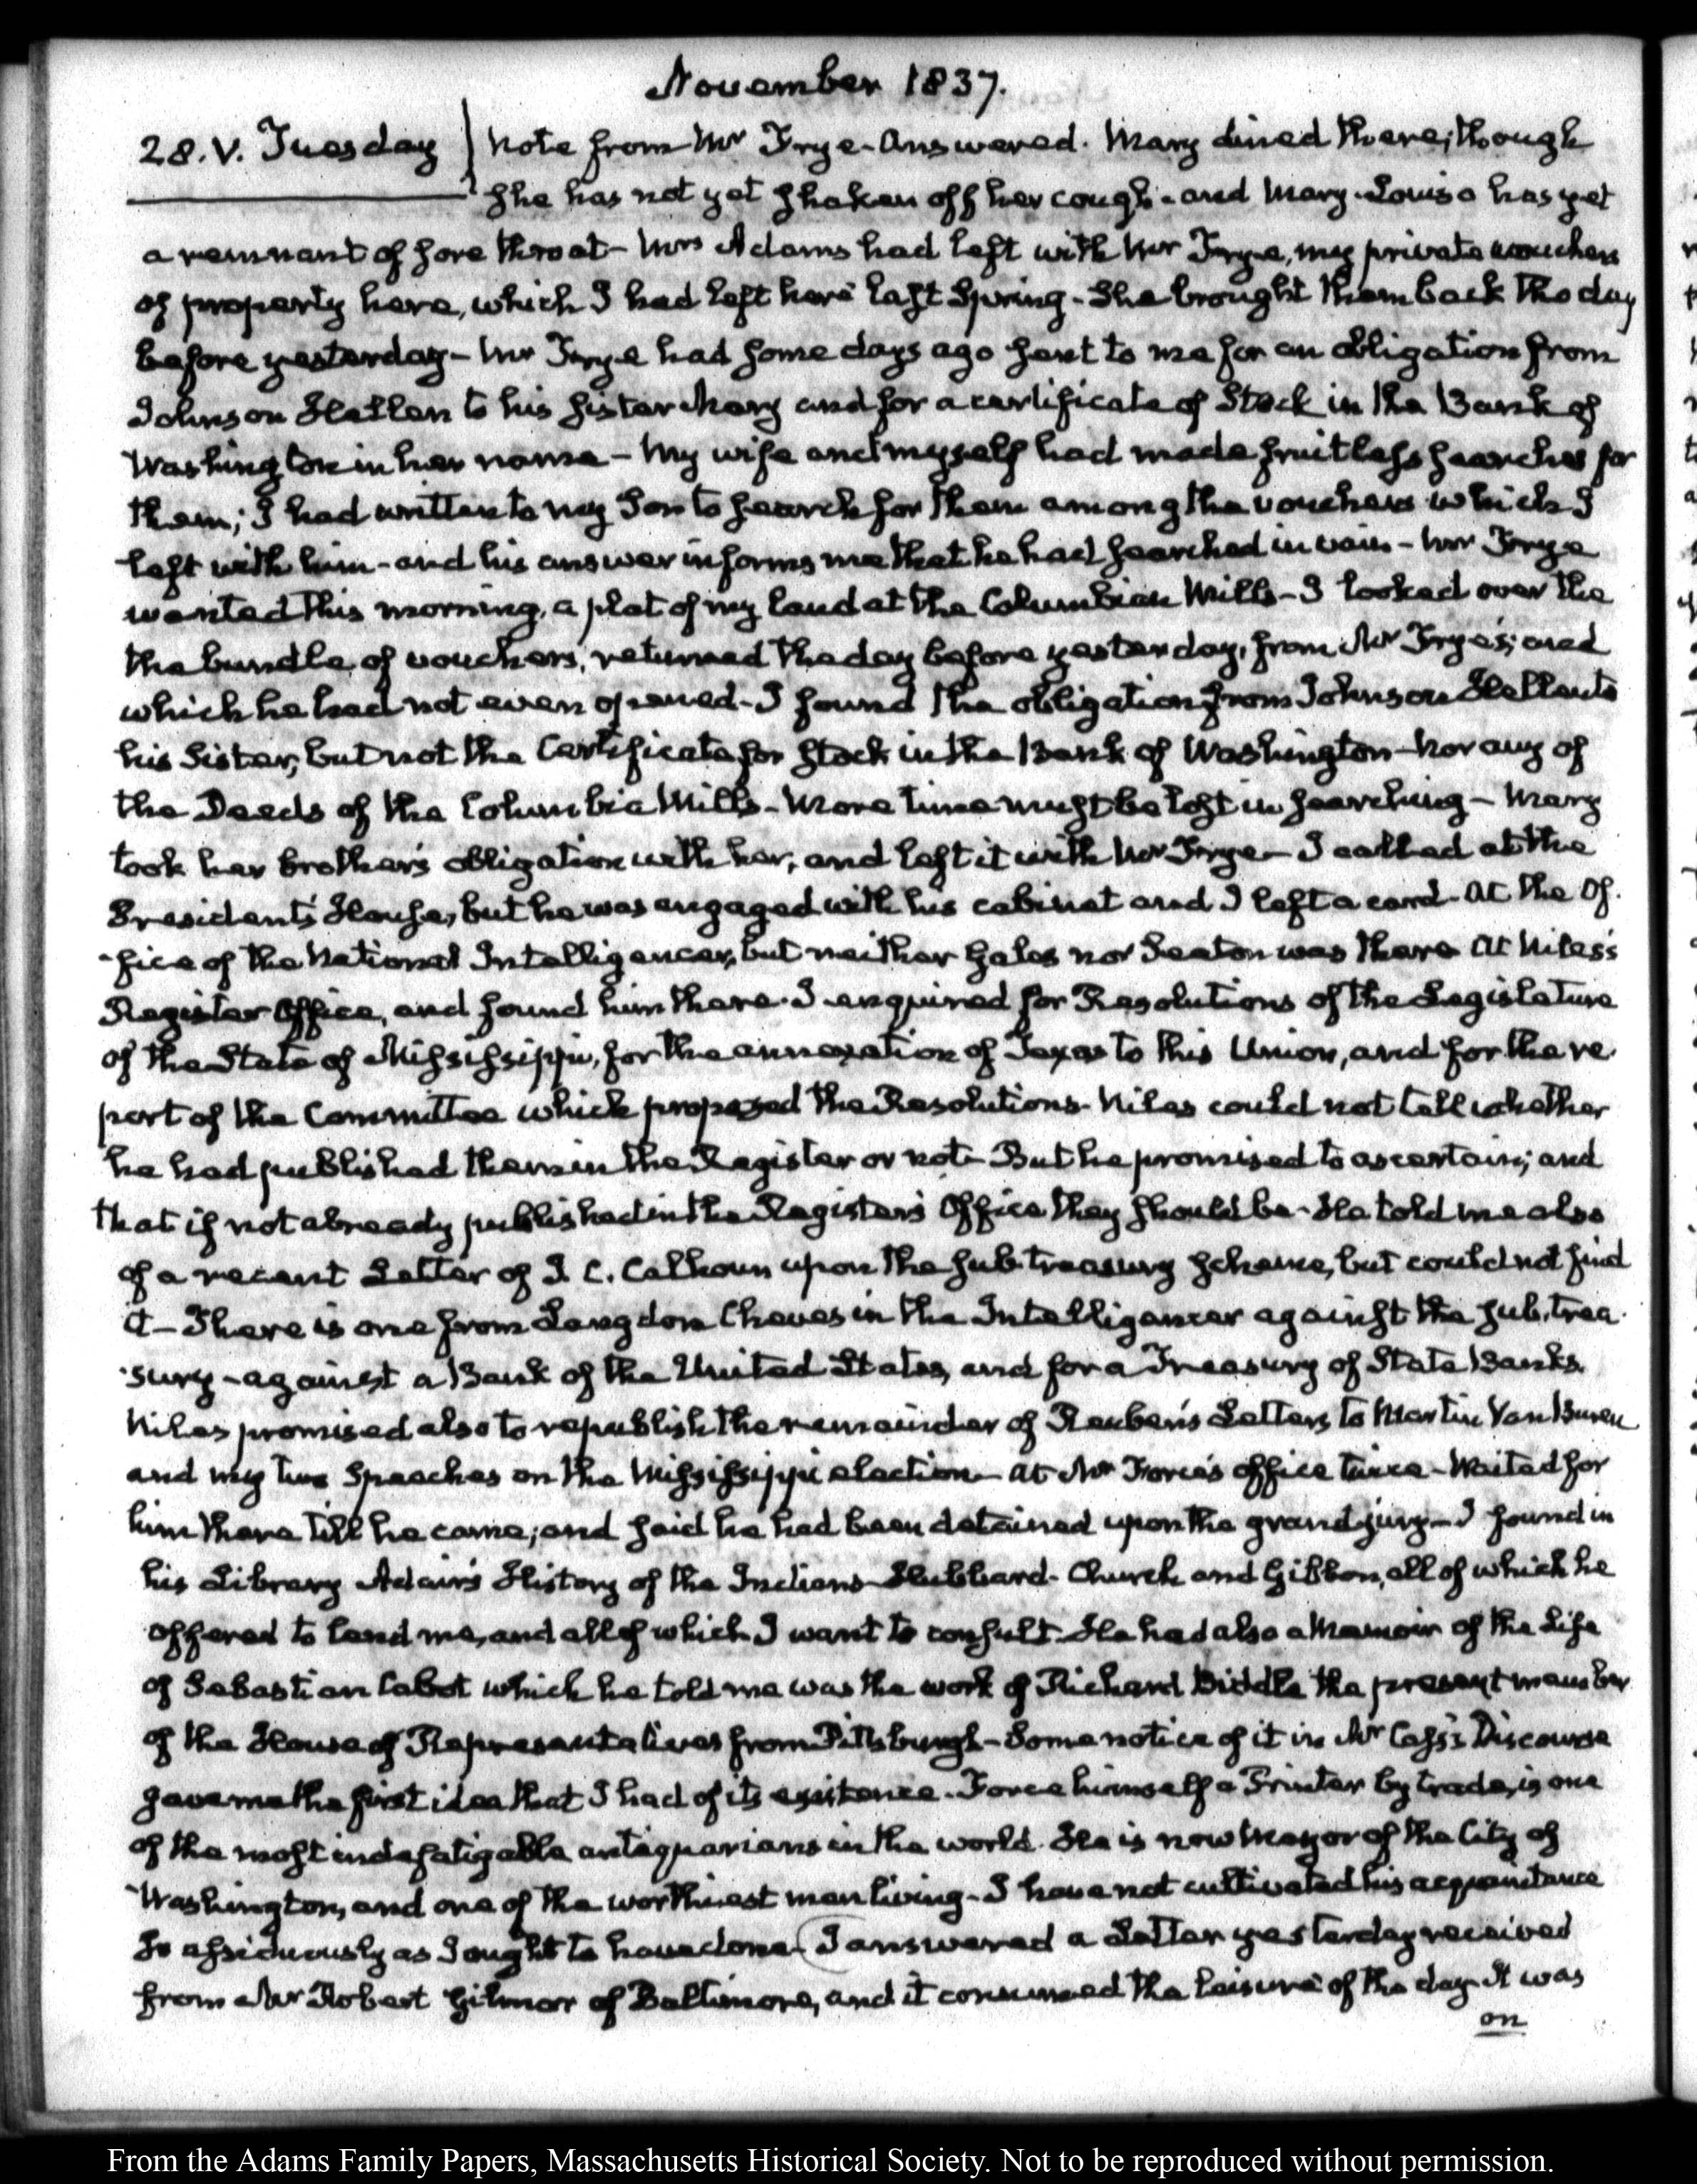 November 1837.
28. V. Tuesday
Note from Mr Frye. Answered. Mary dined there; though
she has not yet shaken off her cough - and Mary-Louisa has yet
a remnant of sore throat - Mrs Adams had left with Mr Frye, my private vouchers
of property here, which I had left here last Spring - She brought them back the day
before yesterday - Mr Frye had some days ago sent to me for an obligation from
Johnson Hellen to his sister Mary and for a certificate of Stock in the Bank of
Washington in her name - My wife and myself had made fruitless searches for
them; I had written to my Son to search for them among the vouchers which I
left with him - and his answer informs me that he had searched in vain - Mr Frye
wanted this morning, a plat of my land at the Columbian Mills - I looked over the
the bundle of vouchers, returned the day before yesterday, from Mr Frye's; and
which he had not even opened - I found the obligation from Johnson Hellen to
his Sister, but not the Certificate for Stock in the Bank of Washington - nor any of
the Deeds of the Columbia Mills - More time must be lost in searching - Mary
took her brother's obligation with her, and left it with Mr Frye - I called at the
President's House, but he was engaged with his cabinet and I left a card - At the Of-
-fice of the National Intelligencer, but neither Gales nor Seaton was there At Niles's
Register Office, and found him there. I enquired for Resolutions of the Legislature
of the State of Mississippi, for the annexation of Texas to this Union, and for the re-
port of the Committee which proposed the Resolutions - Niles could not tell whether
he had published them in the Register or not - But he promised to ascertain; and
that if not already published in the Register's Office they should be - He told me also
of a recent Letter of J. C. Calhoun upon the sub-treasury scheme, but could not find
it - There is one from Langdon Cheves in the Intelligencer against the sub, trea-
-sury - against a Bank of the United States, and for a Treasury of State Banks.
Niles promised also to republish the remainder of Reuben's Letters to Martin Van Buren
and my two Speeches on the Mississippi election - At Mr Force's office twice - Waited for
him there till he came; and said he had been detained upon the grand jury - I found in
his Library Adair's History of the Indians - Hubbard - Church and Gibbon, all of which he
offered to lend me, and all of which I want to consult. He had also a Memoir of the Life
of Sebastian Cabot which he told me was the work of Richard Biddle the present member
of the House of Representatives from Pittsburgh - Some notice of it in Mr Cass's Discourse
gave me the first idea that I had of its existence. Force himself a Printer by trade, is one
of the most indefatigable antiquarians in the world. He is now Mayor of the City of
Washington, and one of the worthiest men living - I have not cultivated his acquaintance
so assiduously as I ought to have done - I answered a Letter yesterday received
from Mr Robert Gilmor of Baltimore, and it consumed the leisure of the day. It was
on
From the Adams Family Papers, Massachusetts Historical Society. Not to be reproduced without permission.